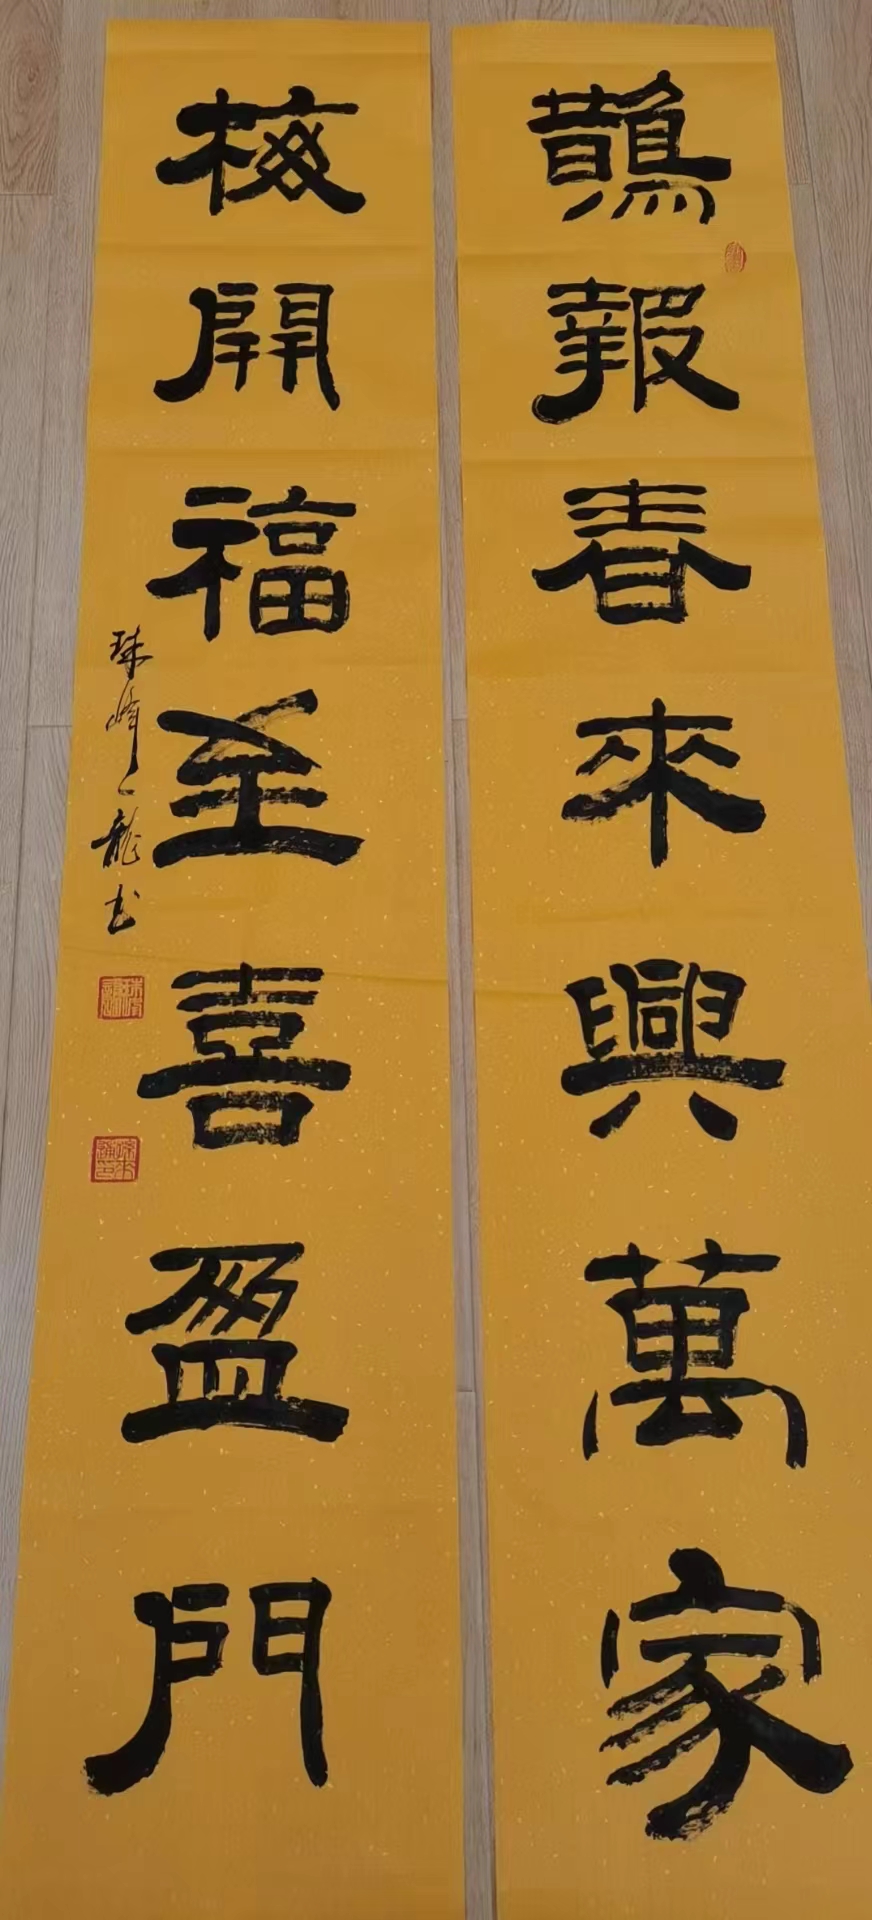 鵲報春來興萬家
梅開福至喜盈門
珠峰一龍书